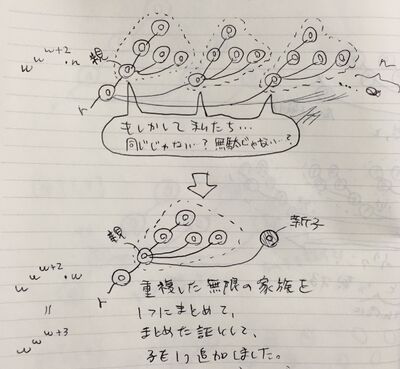 w^w^{w+2}・n
親
n
r
もしかして私たち…
同じじゃない…？無駄じゃない…？
親
新子
w^w^{w+2}・w
r
=
w^w^{w+3}
重複した無限の家族を
1つにまとめて、
まとめた証として、
子を1つ追加しました。